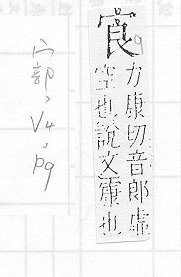 㝗
力康切音郎虛
空也說文㝩也
宀部, V4, P9